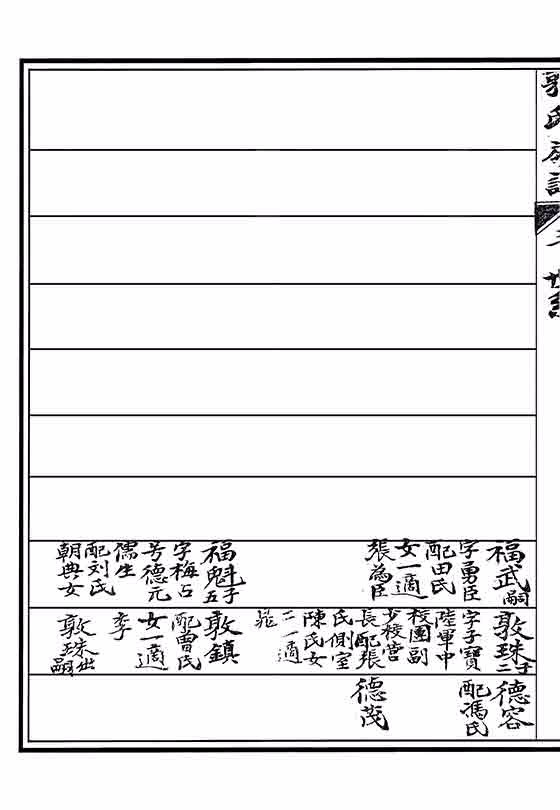 氏族譜
世系
福武嗣
字勇臣
配田氏
女一適
張為臣
福魁五子
字梅占
号德元
儒生
配刘氏
朝典女
敦珠二子
字子寶
陸軍中
校團副
少校营
長配張
氏側室
陳氏女
二一適
敦鎮
配曹氏
女一適
李
敦珠出嗣
德容
配馮氏
德茂